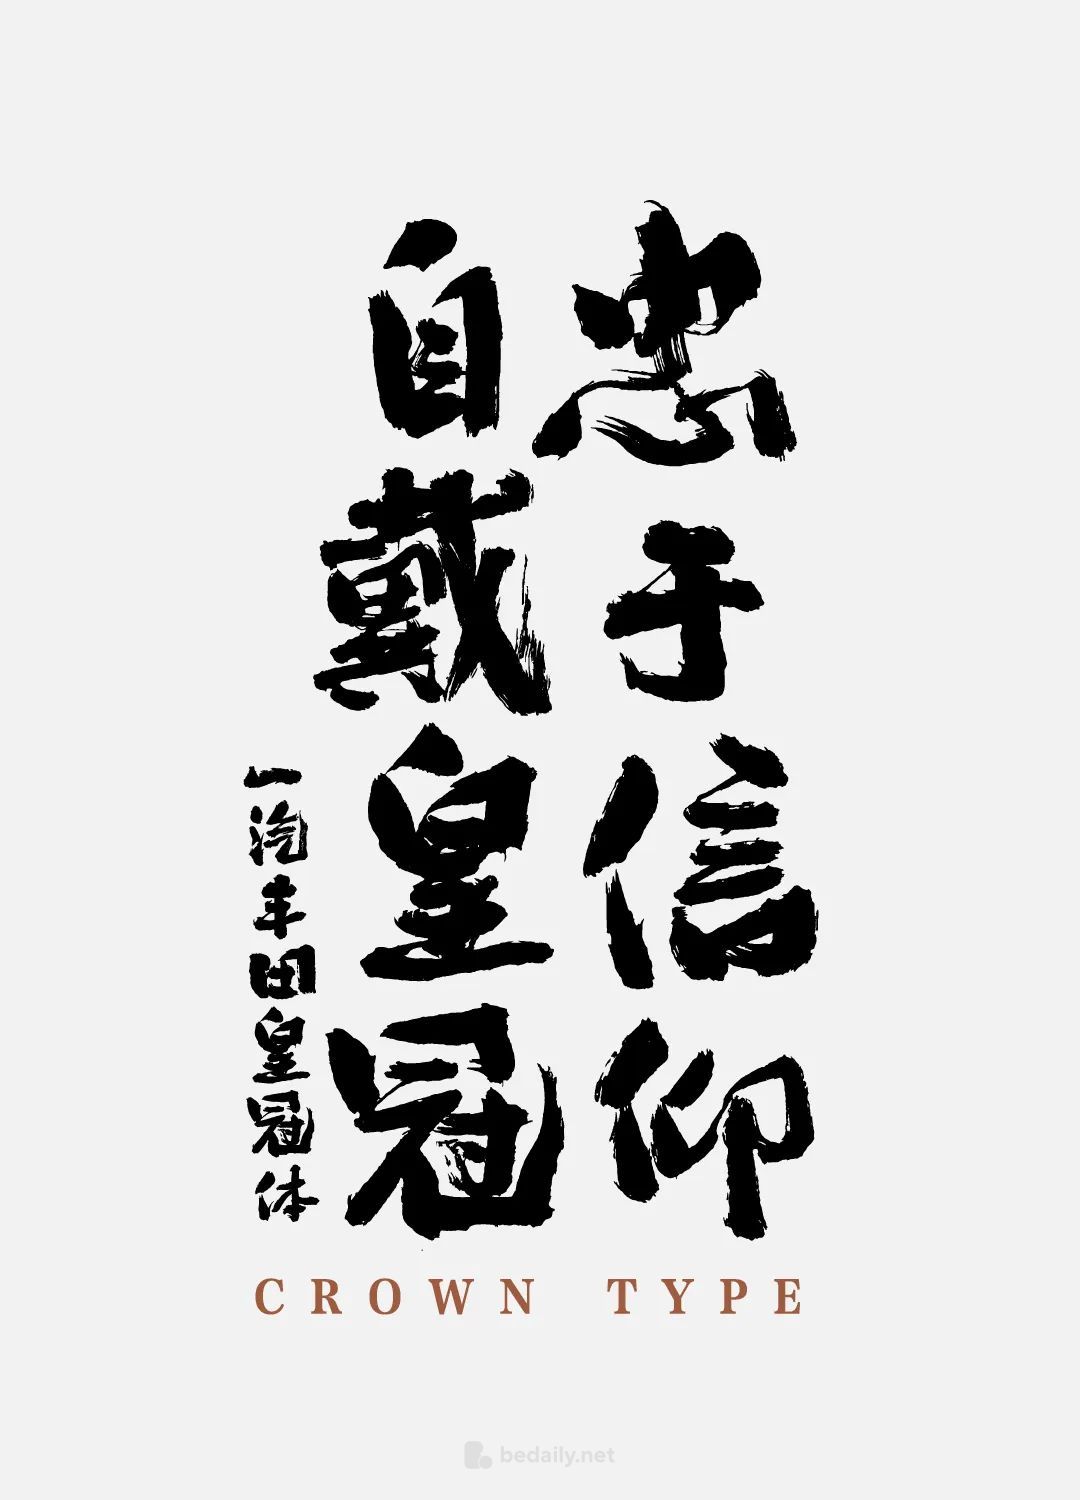 忠于信仰
自戴皇冠
一汽丰田皇冠体
CROWN TYPE
bedaily.net